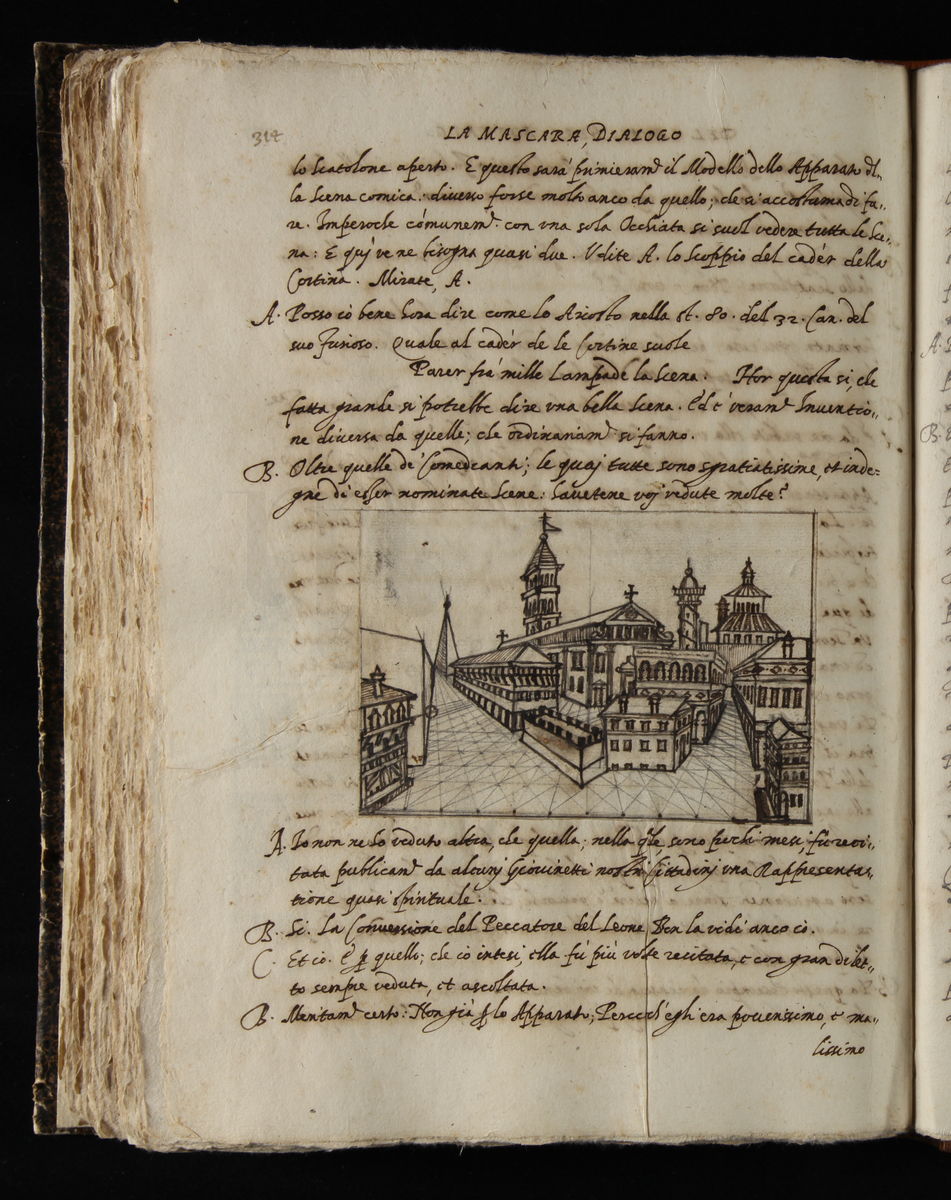 314
LA MASCARA, DIALOGO
lo scatolone aperto. E questo sarà primieram.te il Modello dello Apparato dl-
la scena comica: diverso forse molto anco da quello; che si accostuma di fa-
re. Imperoche cómunem.te con una sola Occhiata si suol vedere tutta le Sce-
na: E quj ve ne bisogna quasi due. Udite A. lo scoppio del cadér della
Cortina. Mirate, A.
A. Posso iò bene hora dire come lo Ariosto nella st. 80. del 32. Can. del
suo Furioso. Quale al cadér de le Cortine suole
Parer frà mille Lampade la scena: Hor questa si, che
fatta grande si potrebbe dire una bella scena. Ed è veram.te Inventio-
ne diversa da quelle; che ordinariam.te si fanno.
B. Oltre quelle de' Comedianti; le quaj tutte sono sgratiatissime, et inde-
gne di esser nominate Scene: Havetene voj vedute molte?
A. Io non ne hò veduto altra, che quella; nella q.le, sono pochi mesi, fù reci-
tata publicam.te da alcunj Giovinetti nostri Cittadinj una Rappresenta-
tione quasi spirituale.
B. Si. La Conversione del Peccatore del Leone. Ben la vidi anco iò.
C. Et iò. E p quello; che iò intesi, ella fù più volte recitata, e con gran dilet-
to sempre veduta, et ascoltata.
B. Meritam.te certo: Non già p lo Apparato; Perch'egli era poverissimo, e ma-
lissimo